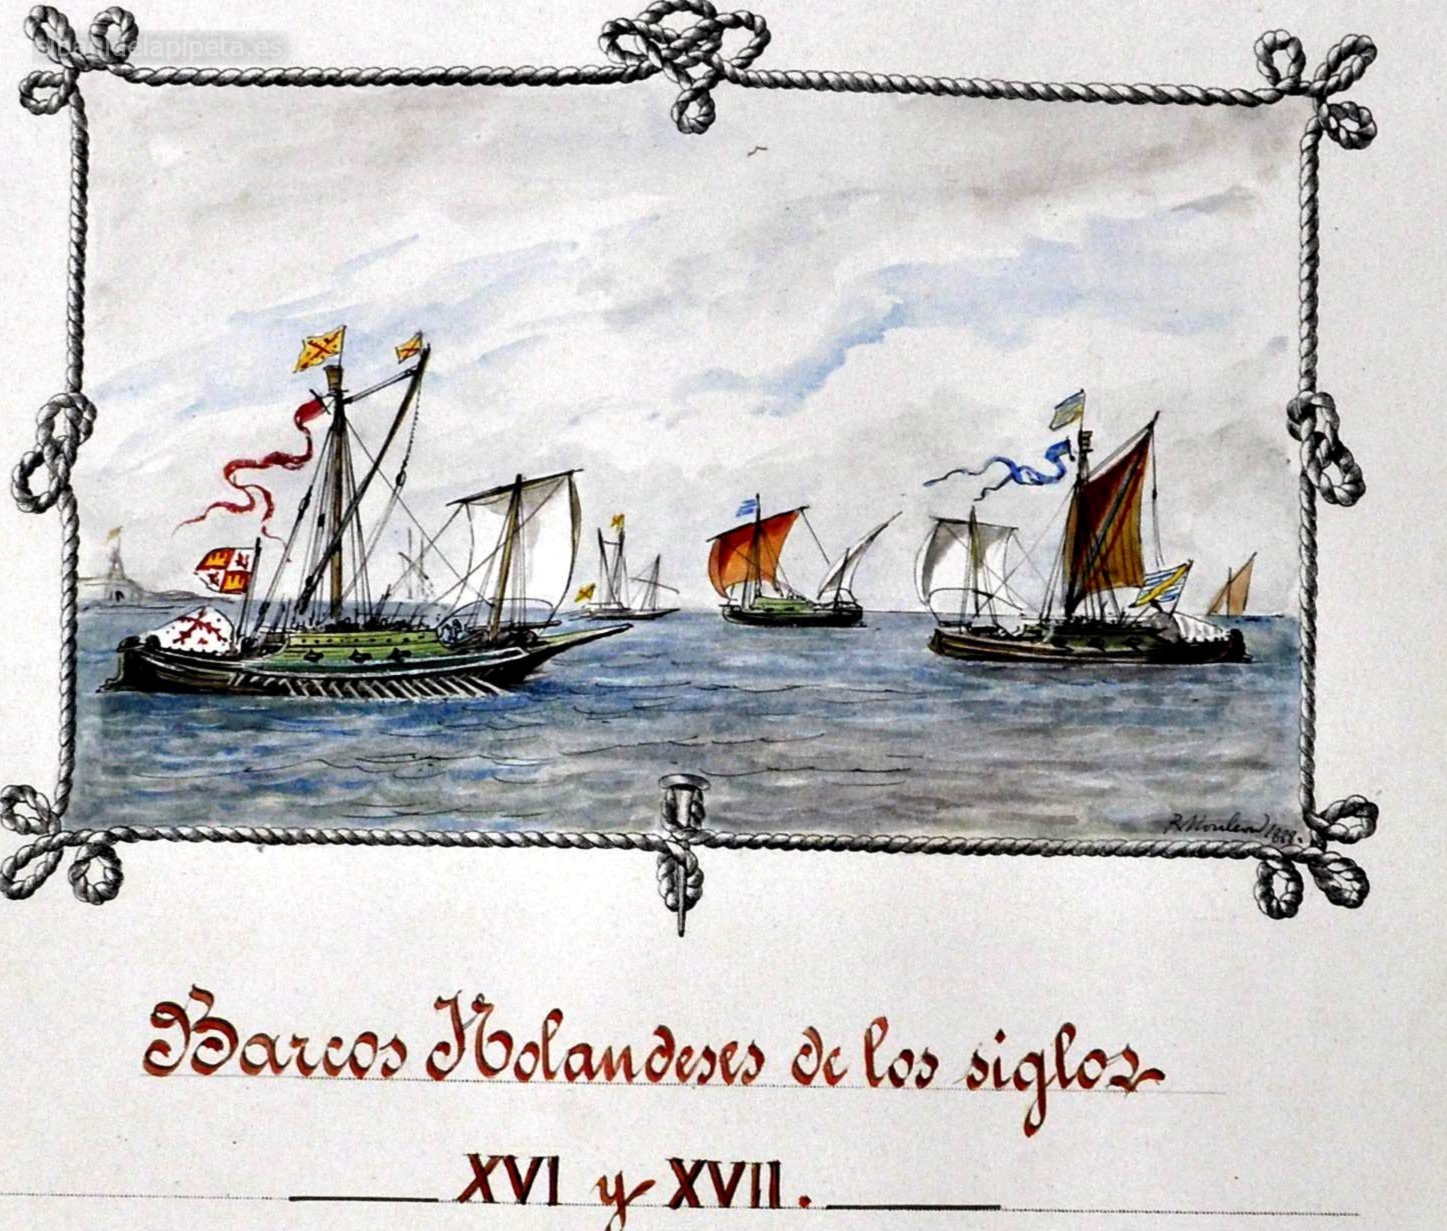 elbauldelapipeta.es
R. Monleon 1888.
Barcos Holandeses de los siglos
XVI y XVII.